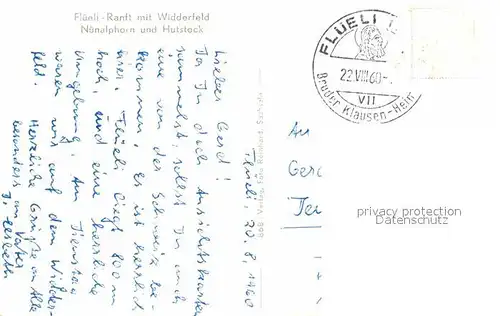 Flüeli-Ranft mit Widderfeld
Nünalphorn und Hutstock
Flüeli 20. 8. 1960
Lieber Gerd!
Da Du doch Ansichtskarten
sammelst, sollst Du auch
eine von der Schweiz be-
kommen. Es ist herrlich
hier. Flüeli liegt 800 m
hoch, und eine herrliche
Umgebung. Am Dienstag
waren wir auf dem Widder-
feld. Herzliche Grüße an Alle
besonders an Vater
868 Verlag Foto Reinhard, Sachseln
FLÜELI
22.VIII.60-
VII
Bruder Klausen-Heim
An
privacy protection
Datenschutz